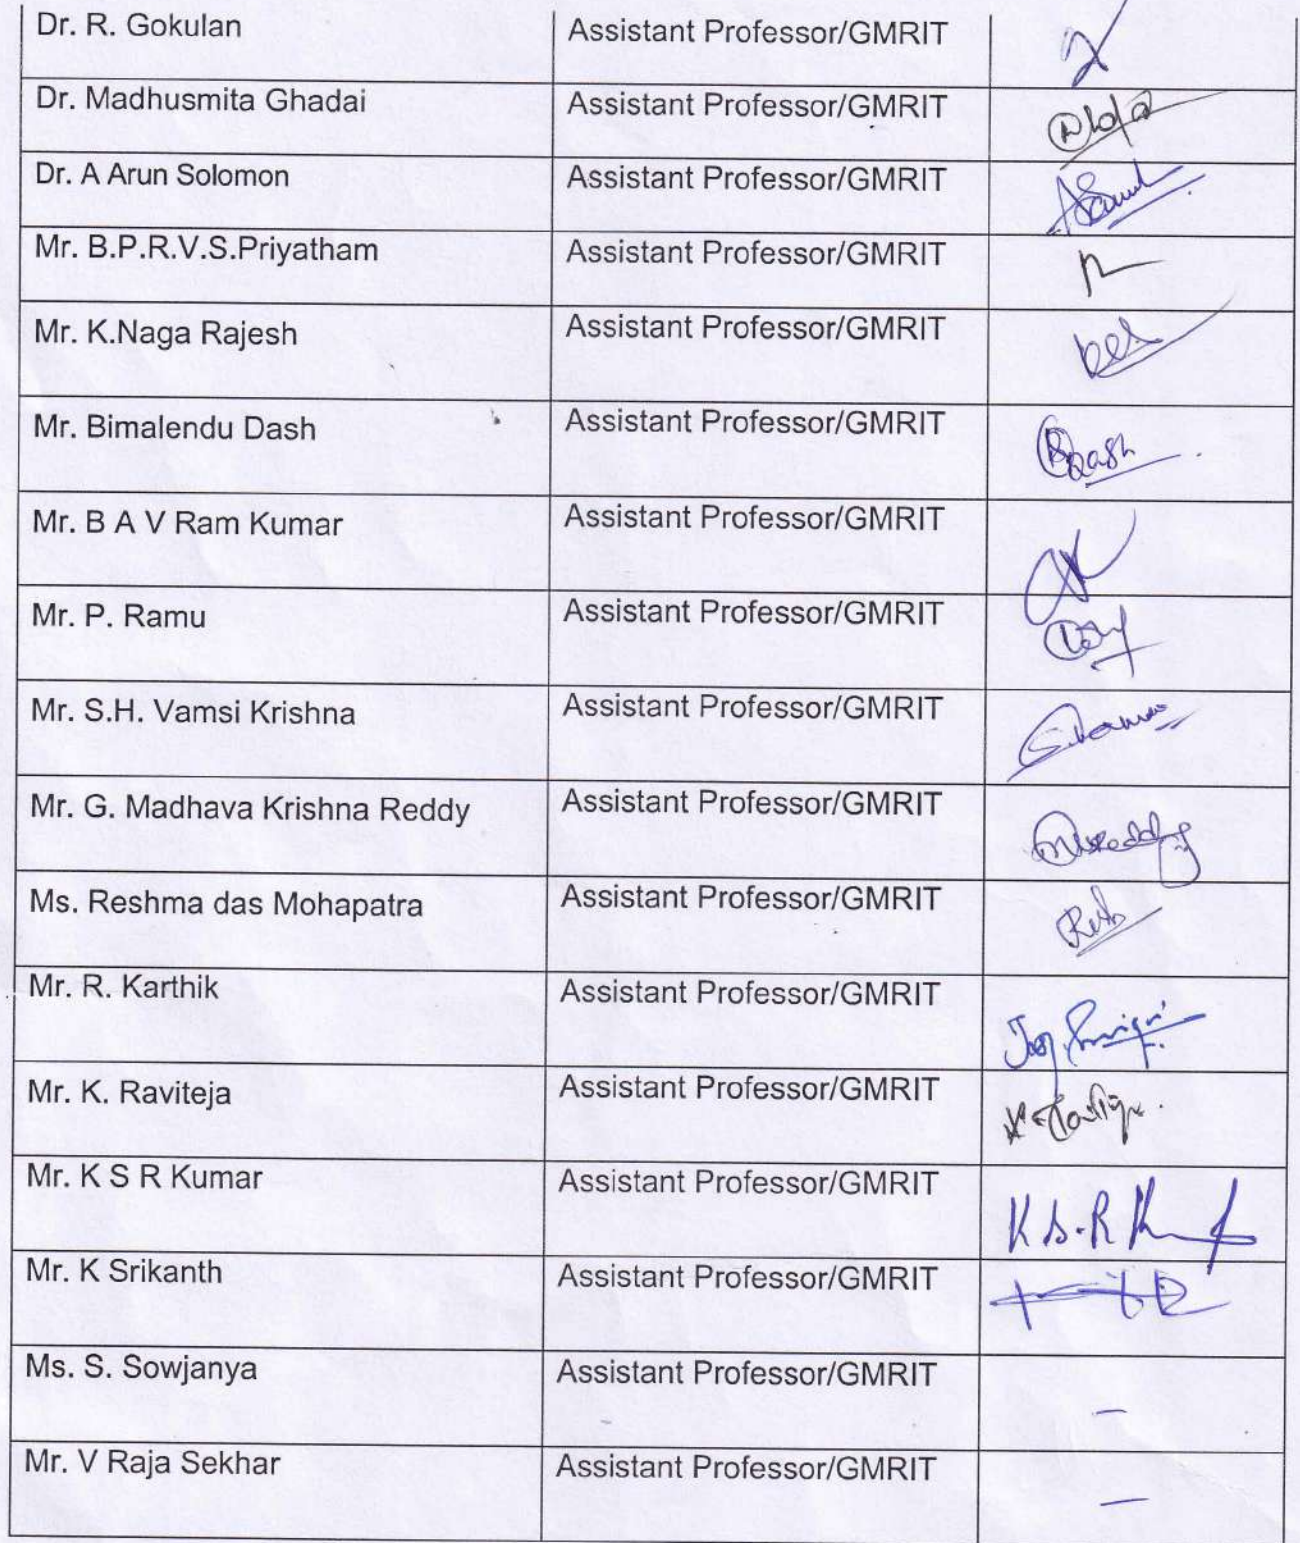 Dr. R. Gokulan Assistant Professor/GMRIT
Dr. Madhusmita Ghadai Assistant Professor/GMRIT
Dr. A Arun Solomon Assistant Professor/GMRIT
Mr. B.P.R.V.S.Priyatham Assistant Professor/GMRIT
Mr. K.Naga Rajesh Assistant Professor/GMRIT
Mr. Bimalendu Dash Assistant Professor/GMRIT
Mr. B A V Ram Kumar Assistant Professor/GMRIT
Mr. P. Ramu Assistant Professor/GMRIT
Mr. S.H. Vamsi Krishna Assistant Professor/GMRIT
Mr. G. Madhava Krishna Reddy Assistant Professor/GMRIT
Ms. Reshma das Mohapatra Assistant Professor/GMRIT
Mr. R. Karthik Assistant Professor/GMRIT
Mr. K. Raviteja Assistant Professor/GMRIT
Mr. K S R Kumar Assistant Professor/GMRIT
Mr. K Srikanth Assistant Professor/GMRIT
Ms. S. Sowjanya Assistant Professor/GMRIT –
Mr. V Raja Sekhar Assistant Professor/GMRIT –